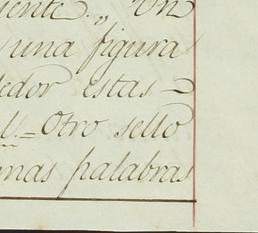 iente.,, Un
una figura
dedor estas-
l.=Otro sello
nas palabras